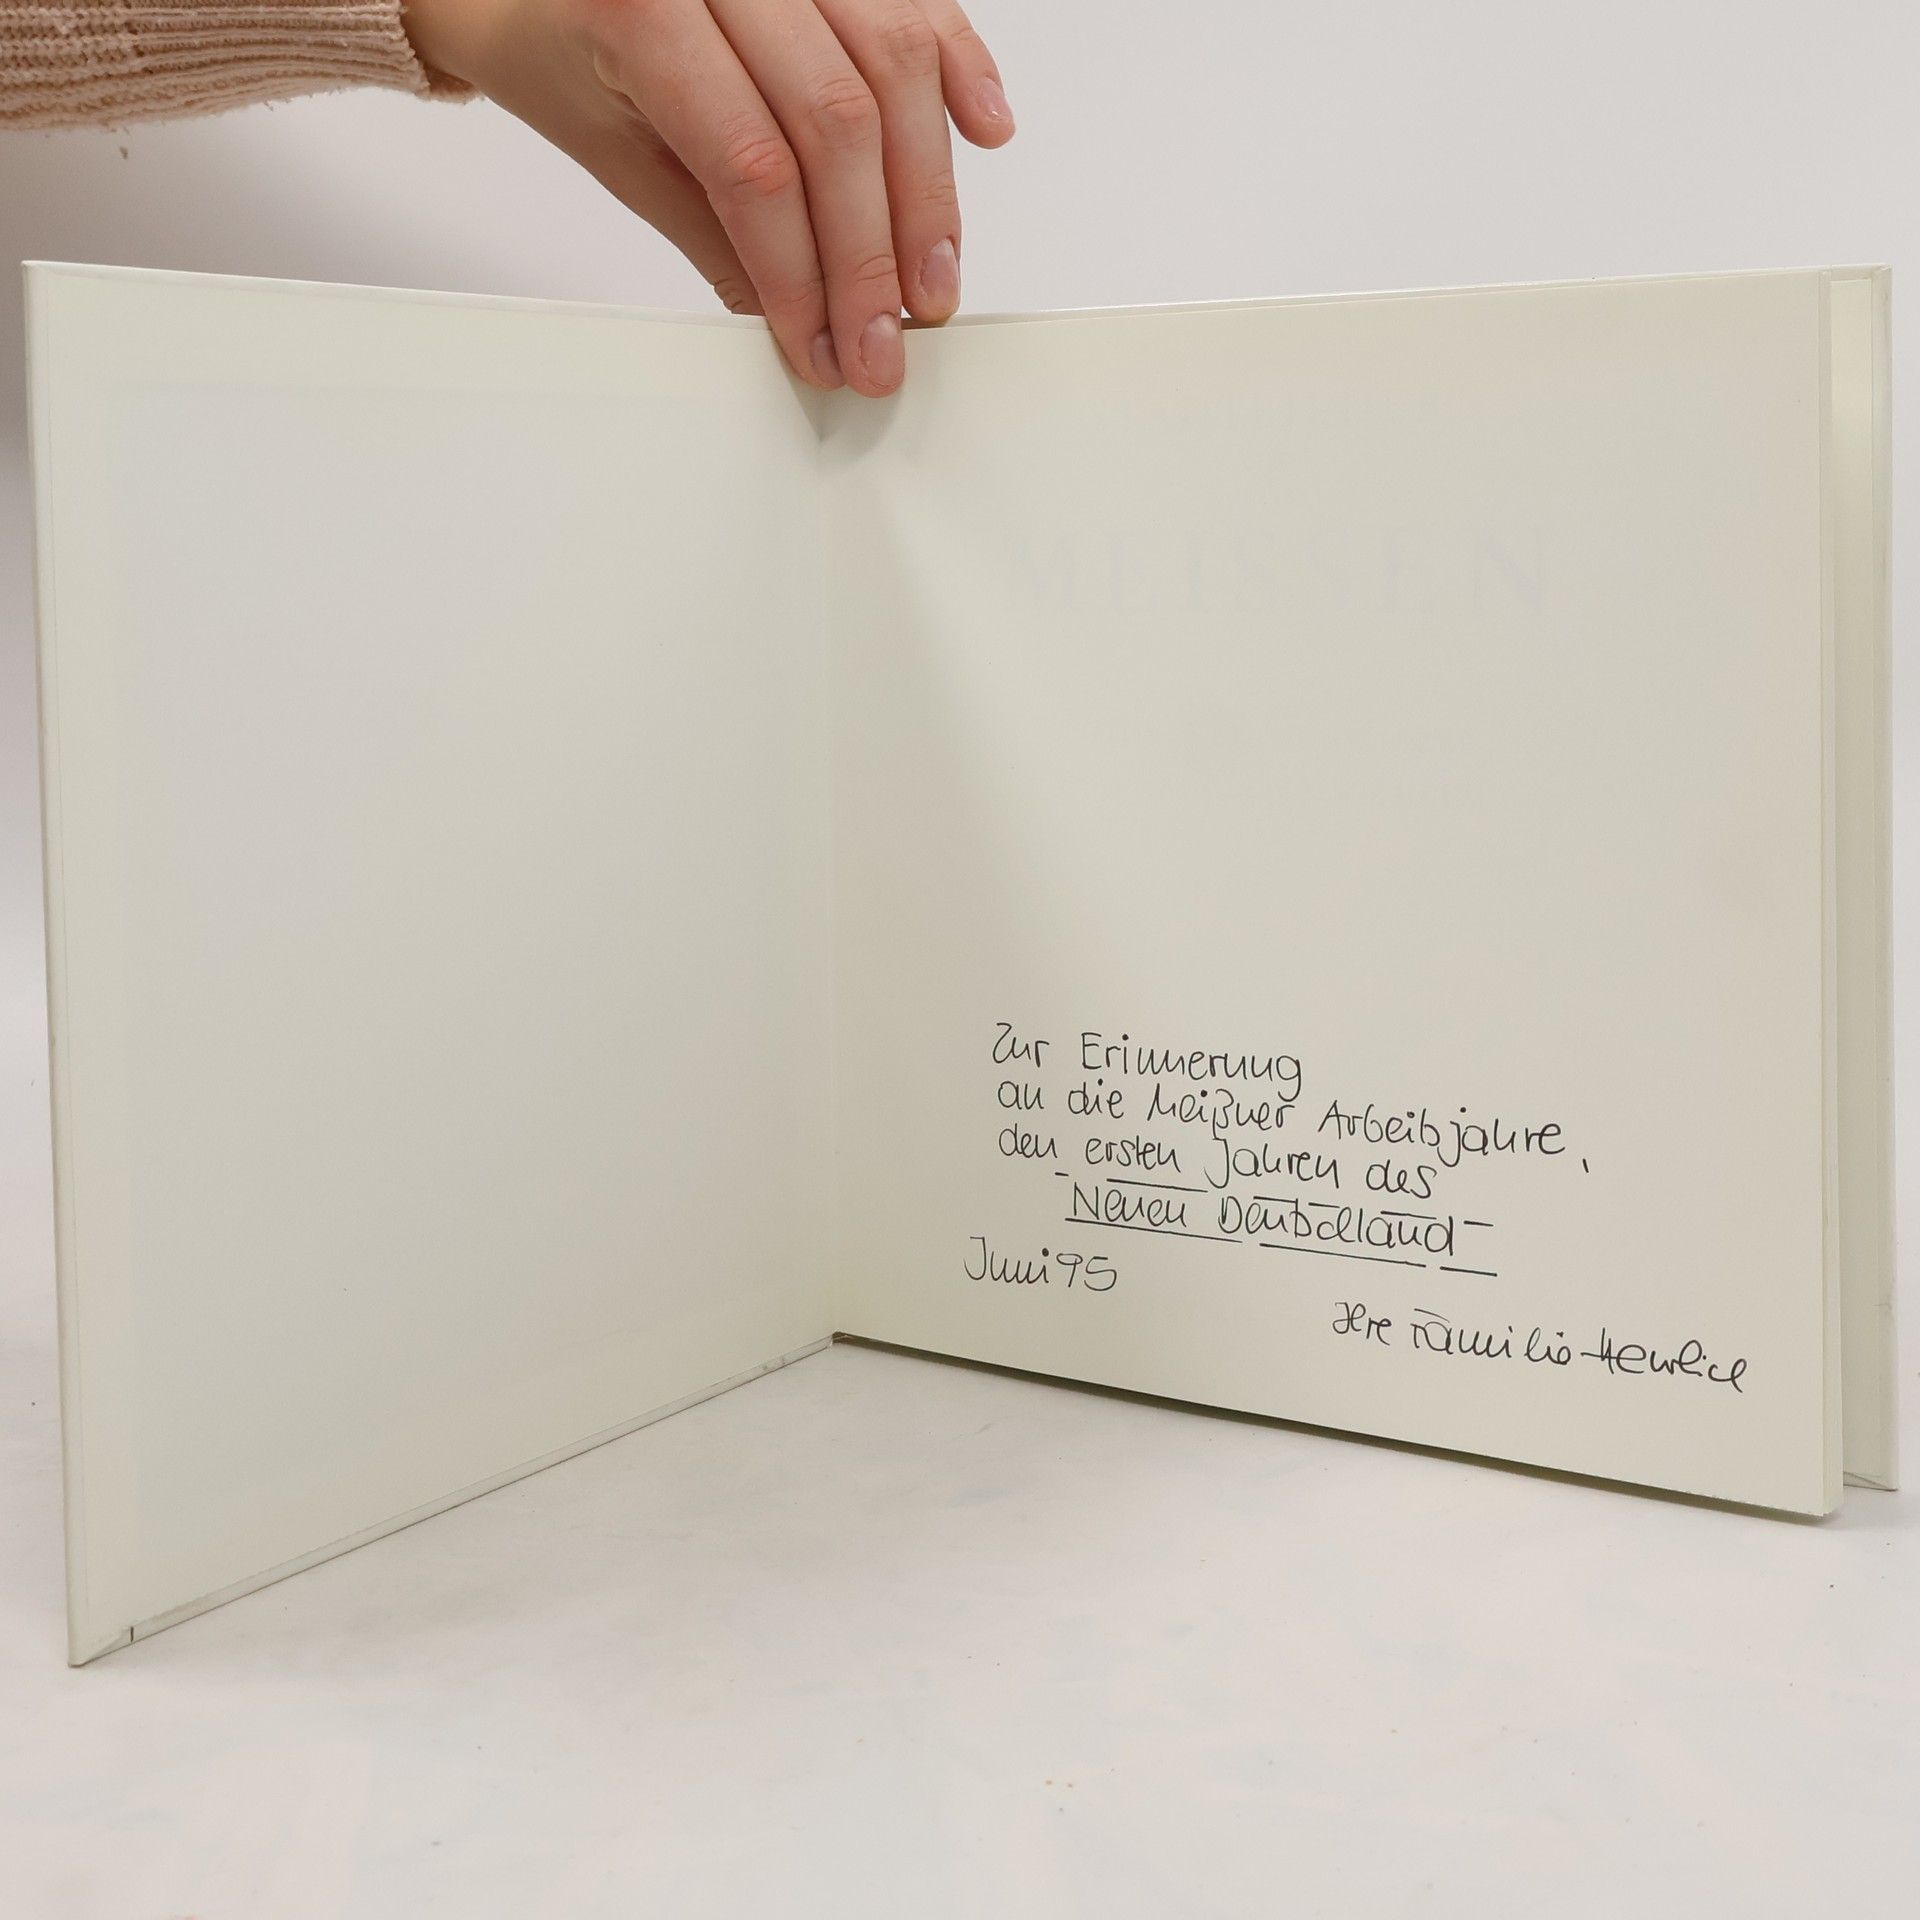 MEISSEN
Zur Erinnerung
an die Meißner Arbeitsjahre,
den ersten Jahren des
Neuen Deutschland
Juni 95
Ihre Familie